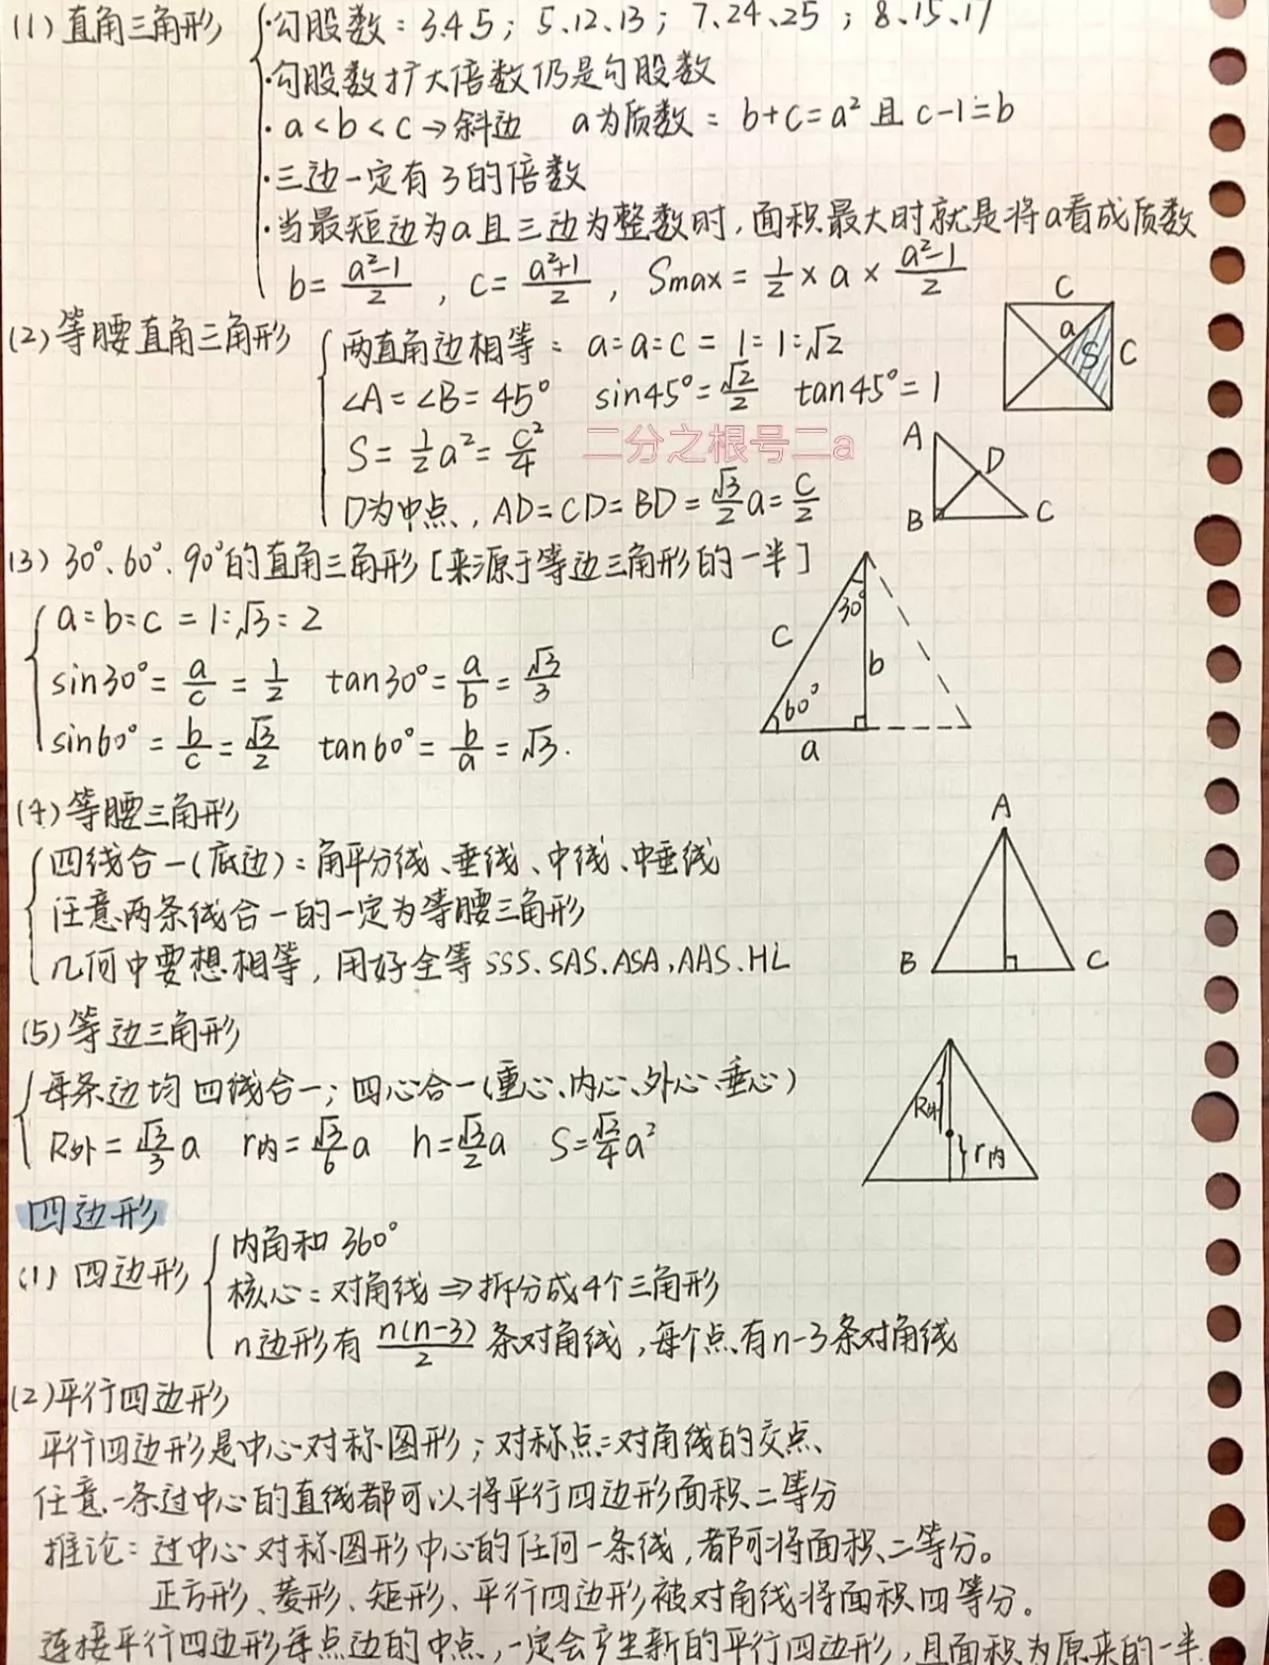 (1) 直角三角形
·勾股数：3.4.5；5、12、13；7、24、25；8、15、17
·勾股数扩大倍数仍是勾股数
·a<b<c→斜边 a为质数：b+c=a²且c-1=b
·三边一定有3的倍数
·当最短边为a且三边为整数时，面积最大时就是将a看成质数
b=(a²-1)/2，c=(a²+1)/2，Smax=1/2×a×(a²-1)/2
C
a
S
C
(2) 等腰直角三角形
两直角边相等：a:a:c=1:1:√2
∠A=∠B=45° sin45°=√2/2 tan45°=1
S=1/2a²=c²/4
二分之根号二a
D为中点，AD=CD=BD=√3/2a=c/2
A
D
B
C
(3) 30°、60°、90°的直角三角形[来源于等边三角形的一半]
a:b:c=1:√3:2
sin30°=a/c=1/2 tan30°=a/b=√3/3
sin60°=b/c=√3/2 tan60°=b/a=√3.
30°
c
b
60°
a
(4) 等腰三角形
四线合一(底边)：角平分线、垂线、中线、中垂线
任意两条线合一的一定为等腰三角形
几何中要想相等，用好全等SSS、SAS、ASA，AAS、HL
A
B
C
(5) 等边三角形
每条边均四线合一；四心合一(重心、内心、外心、垂心)
R外=√3/3a r内=√3/6a h=√3/2a S=√3/4a²
R外
r内
四边形
(1) 四边形
内角和360°
核心：对角线⇒拆分成4个三角形
n边形有n(n-3)/2条对角线，每个点有n-3条对角线
(2)平行四边形
平行四边形是中心对称图形；对称点：对角线的交点、
任意一条过中心的直线都可以将平行四边形面积二等分
推论：过中心对称图形中心的任何一条线，都可将面积二等分。
正方形、菱形、矩形、平行四边形被对角线将面积四等分。
连接平行四边形每点边的中点，一定会产生新的平行四边形，且面积为原来的一半